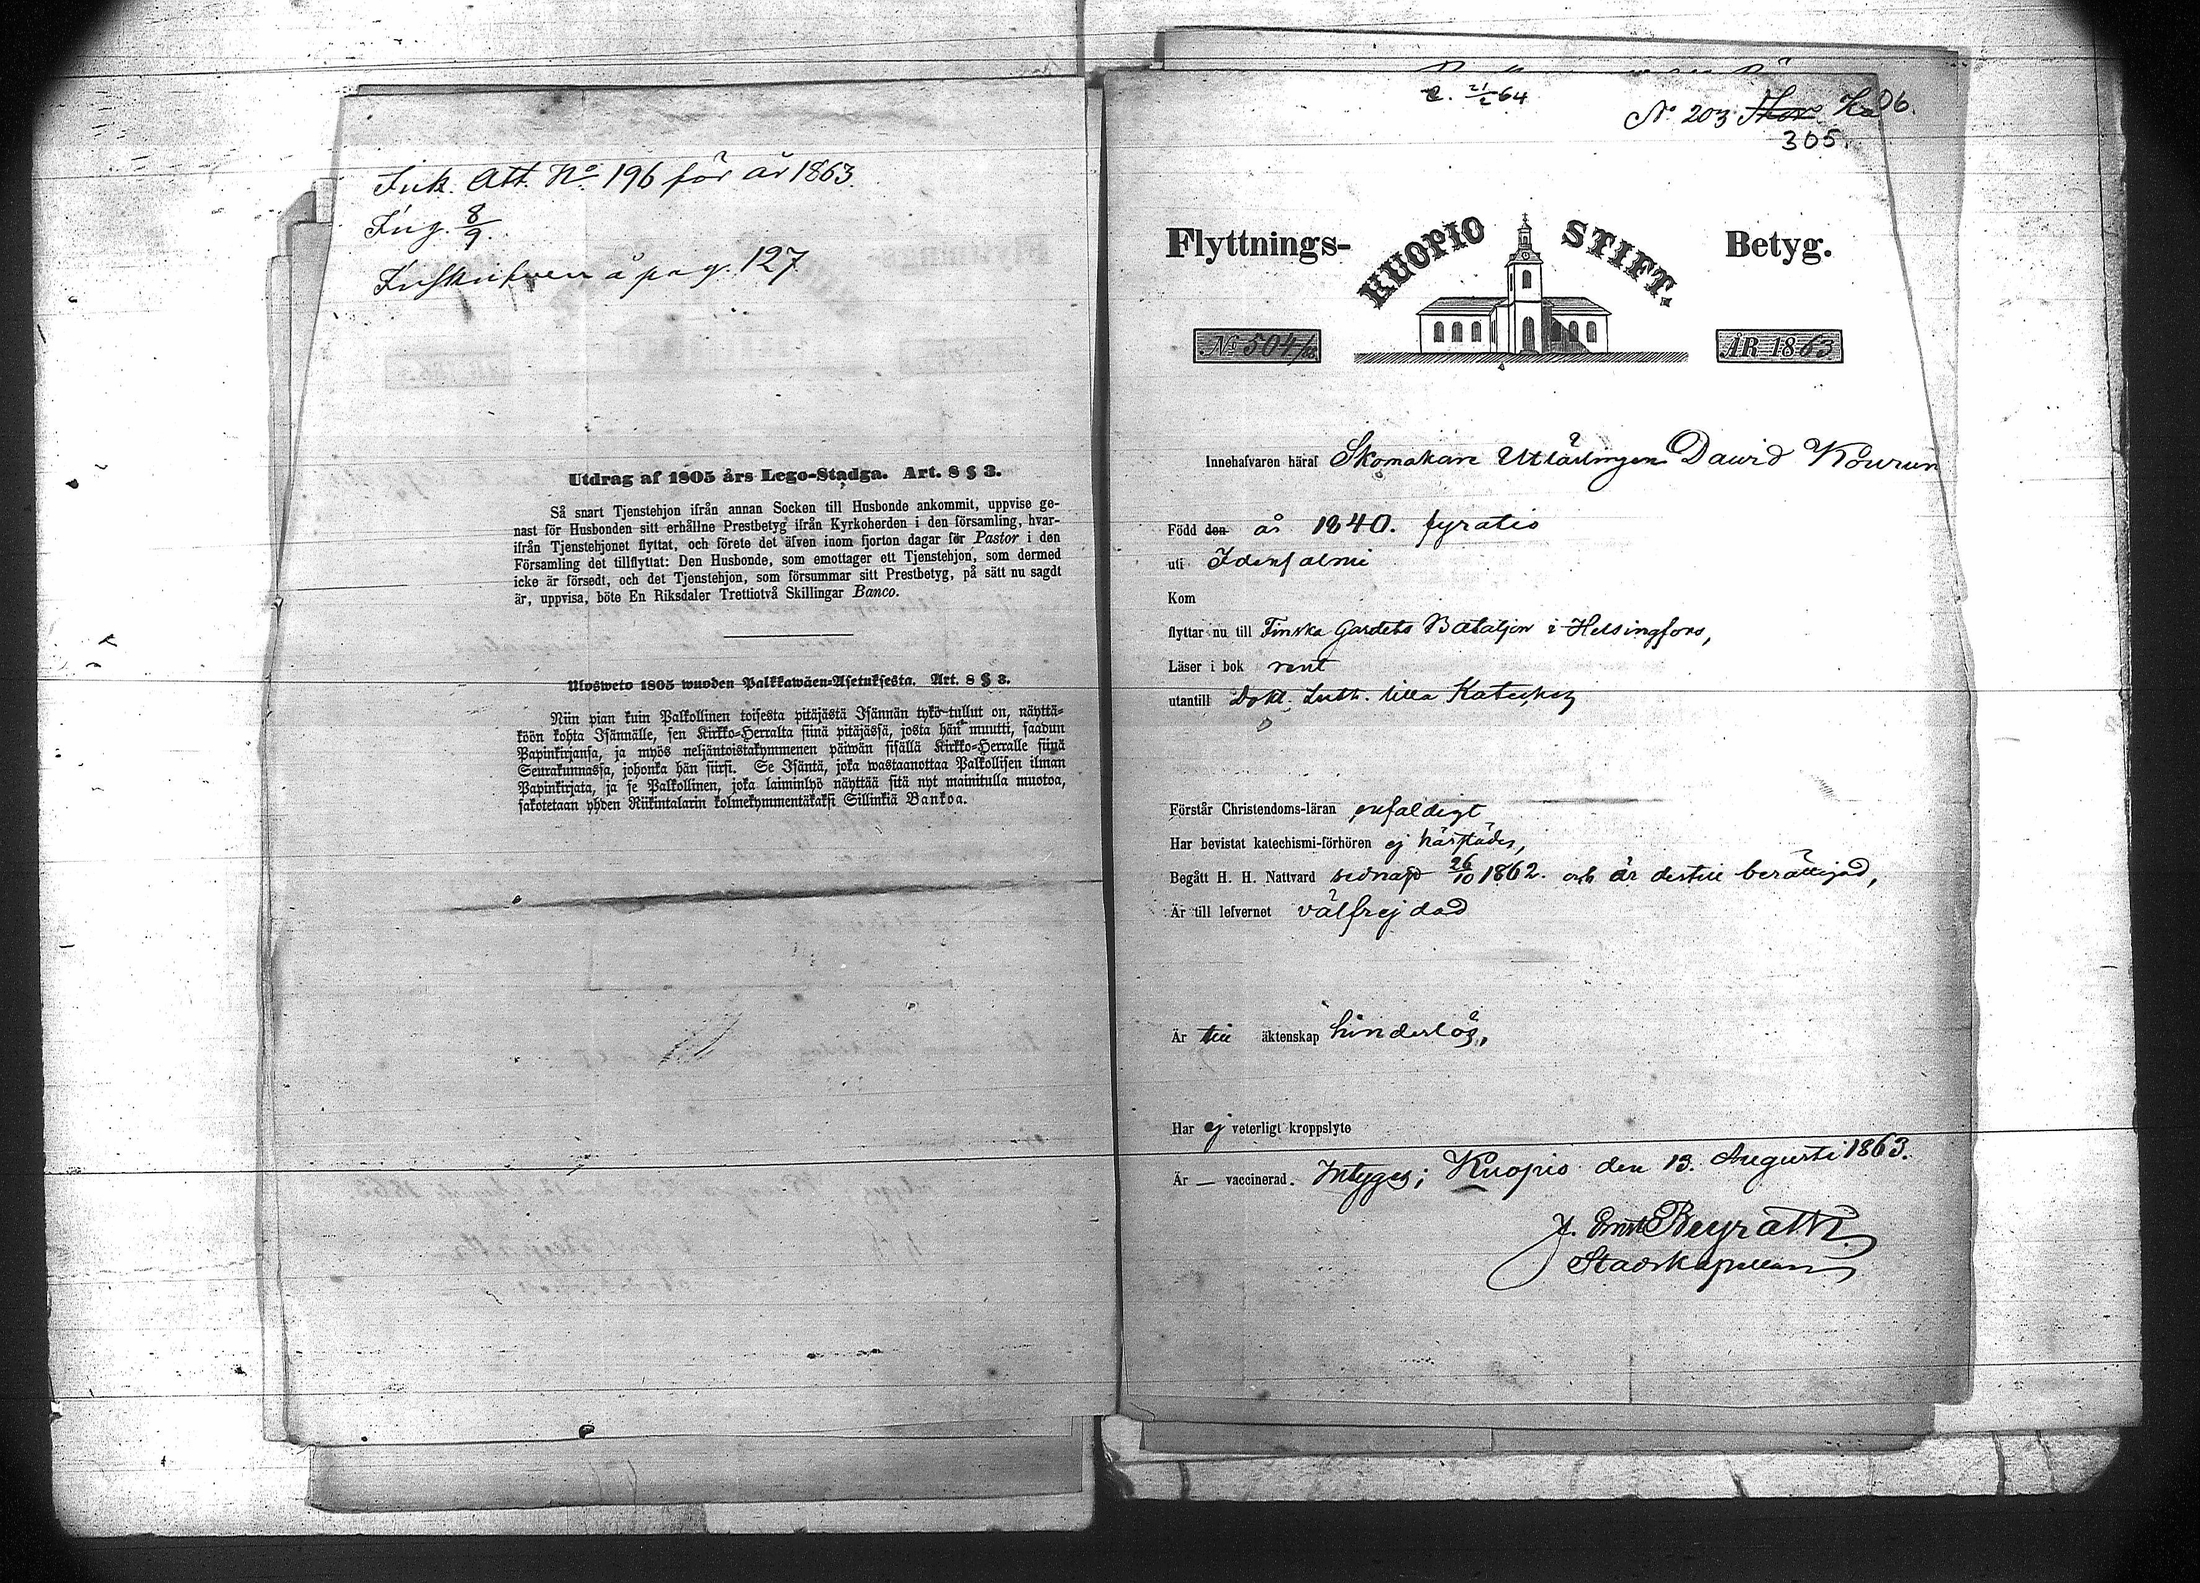 Ink. Att. No 196 för år 1863.
Ing. 8/9.
Inskrifven å pag. 127
Utdrag af 1805 års Lego-Stadga. Art. 8 § 3.
Så snart Tjenstehjon ifrån annan Socken till Husbonde ankommit, uppvise ge-
nast för Husbonden sitt erhållne Prestbetyg ifrån Kyrkoherden i den församling, hvar-
ifrån Tjenstehjonet flyttat, och förete det äfven inom fjorton dagar för Pastor i den
Församling det tillflyttat: Den Husbonde, som emottager ett Tjenstehjon, som dermed
icke är försedt, och det Tjenstehjon, som försummar sitt Prestbetyg, på sätt nu sagdt
är, uppvisa, böte En Riksdaler Trettiotvå Skillingar Banco.
Ulosweto 1805 wuoden Palkkawäen-Asetuksesta. Art. 8 § 3.
Niin pian kuin Palkollinen toisesta pitäjästä Isännän tykö tullut on, näyttä-
köön kohta Isännälle, sen Kirkko-Herralta siinä pitäjässä, josta hän muutti, saadun
Papinkirjansa, ja myös neljäntoistakymmenen päiwän sisällä Kirkko-Herralle siinä
Seurakunnassa, johonka hän siirsi. Se Isäntä, joka wastaanottaa Palkollisen ilman
Papinkirjata, ja se Palkollinen, joka laiminlyö näyttää sitä nyt mainitulla muotoa,
sakotetaan yhden Riikintalarin kolmekymmentäkaksi Sillinkiä Bankoa.
21/2 64
No 203 06.
305.
Flyttnings- KUOPIO STIFT. Betyg.
No 504 ÅR 1863
Innehafvaren häraf Skomakare Utlärlingen David Kourun
Född den år 1840. fyratio
uti Idensalmi
Kom
flyttar nu till Finska Gardets Bataljon i Helsingfors,
Läser i bok rent
utantill Dokt. Luth. lilla Kateches
Förstår Christendoms-läran enfaldigt
Har bevistat katechismi-förhören ej härstädes,
Begått H. H. Nattvard sednast 26/10 1862. och är dertill berättigad,
Är till lefvernet välfrejdad
Är till äktenskap hinderlös,
Har ej veterligt kroppslyte
Är — vaccinerad. Intygas; Kuopio den 13. Augusti 1863.
J. Ernst Beyrath.
Stadskapellan